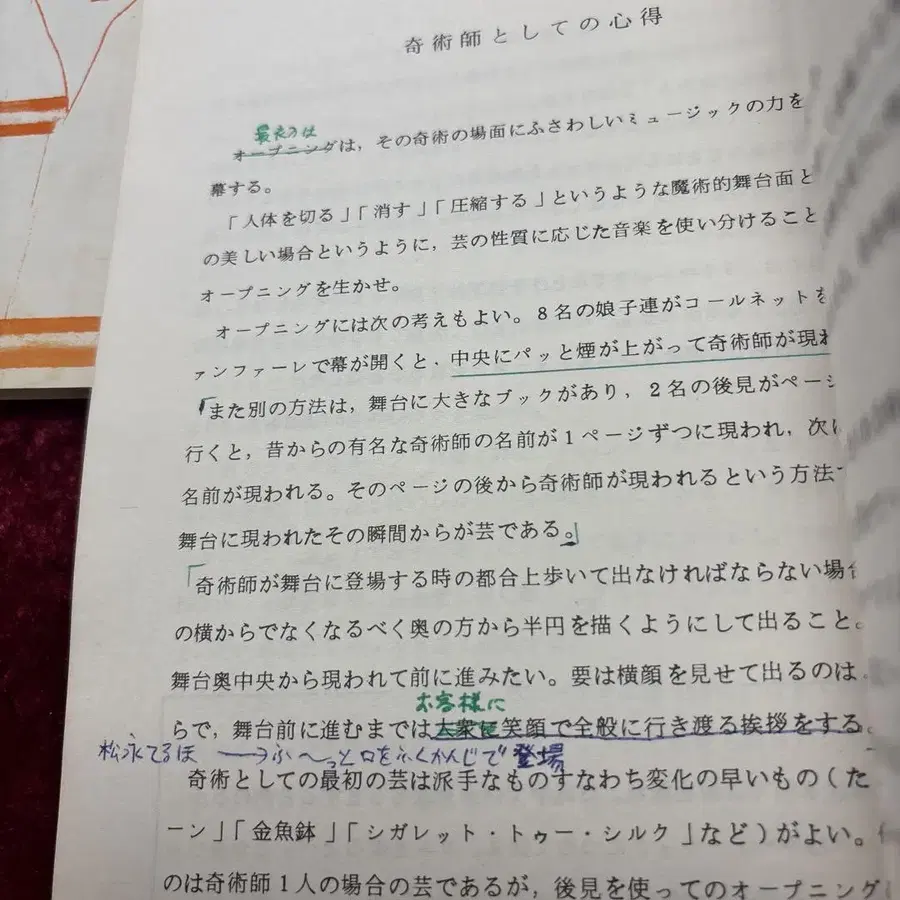 奇術師としての心得
最初は
オープニングは，その奇術の場面にふさわしいミュージックの力を
幕する。
「人体を切る」「消す」「圧縮する」というような魔術的舞台面と
の美しい場合というように，芸の性質に応じた音楽を使い分けること
オープニングを生かせ。
オープニングには次の考えもよい。8名の娘子連がコールネットを
ァンファーレで幕が開くと，中央にパッと煙が上がって奇術師が現わ
「また別の方法は，舞台に大きなブックがあり，2名の後見がページ
行くと，昔からの有名な奇術師の名前が1ページずつに現われ，次に
名前が現われる。そのページの後から奇術師が現われるという方法
舞台に現われたその瞬間からが芸である。」
「奇術師が舞台に登場する時の都合上歩いて出なければならない場合
の横からでなくなるべく奥の方から半円を描くようにして出ること。
舞台奥中央から現われて前に進みたい。要は横顔を見せて出るのは
お客様に
らで，舞台前に進むまでは大衆に笑顔で全般に行き渡る挨拶をする。
松永てるほ →ふ〜っと口をふくかんじで登場
奇術としての最初の芸は派手なものすなわち変化の早いもの（た
ーン」「金魚鉢」「シガレット・トゥー・シルク」など）がよい。
のは奇術師1人の場合の芸であるが，後見を使ってのオープニング